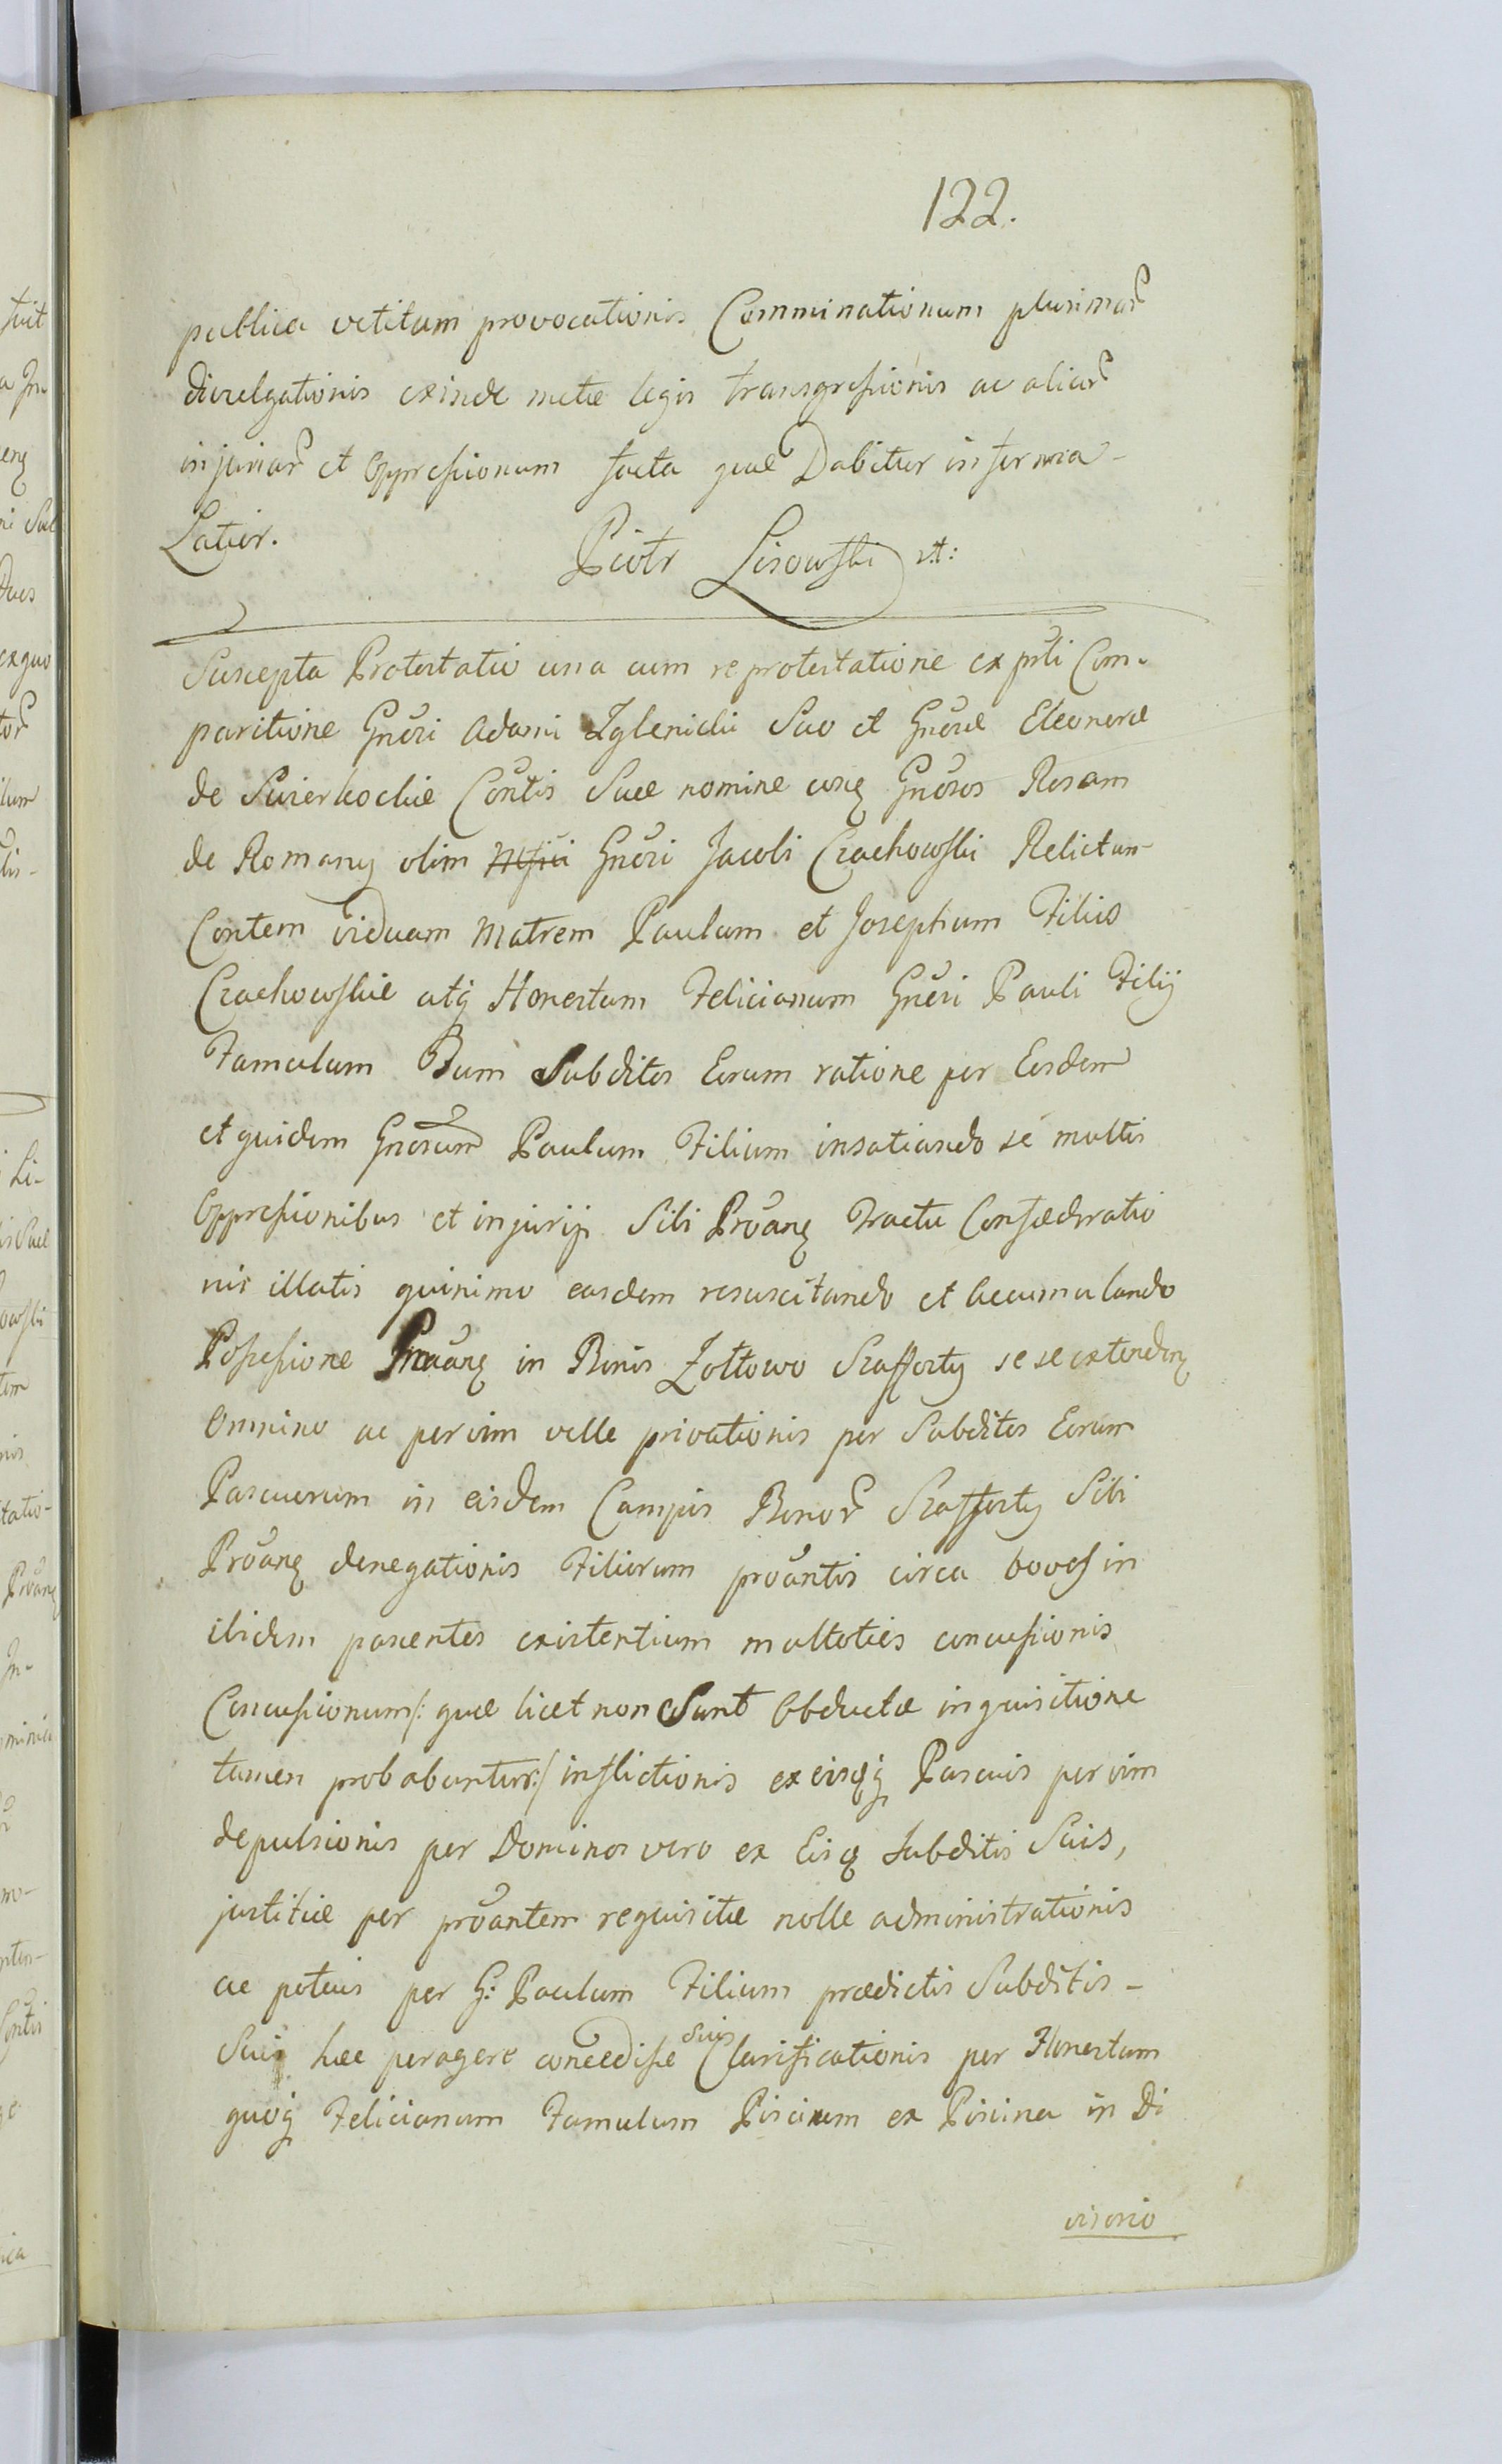 122.
publica vetitam provocationis Comminationum plurimar
divulgationis exinde metæ legis transgressionis ac aliar
injuriar et Oppressionum facta quæ Dabitur in forma
Latior.
Piotr Lisowski
Suscepta Protestatio una cum reprotestatione ex psti Com-
paritione Gnosi Adami Zglenicki Suo et Gnosæ Eleonoræ
de Swierkockie Contis Suæ nomine conq Gnosos Rosam
de Romany olim Gnosi Jacobi Czachowski Relictam
Contem viduam Matrem Paulum et Josephum Filios
Czachowskie atq Honestum Felicianum Gnosi Pauli Filij
Famulum Bum Subditos Eorum ratione per Eosdem
et quidem Gnosum Paulum Filium insatiando se multis
Oppressionibus et injurijs Sibi Proãnq Tractu Confæderatio
nis illatis quinimo easdem resuscitando et accumulando
Possessione Proãnq in Bonis Zołtowo Szafforty se se extendenq
Omnino ac per vim velle privationis per Subditos Eorum
Pascuorum in eisdem Campis Bonor Szafforty Sibi
Proãnq denegationis Filiorum proãntis circa boves in
ibidem pascentes existentium multoties concussionis
Concussionum /: quæ licet non Sunt Obductæ inquisitione
tamen probabuntur :/ inflictionis ex eisq Pascuis per vim
depulsionis per Dominos vero ex Eisq Subditis Suis,
justitiæ per proãntem requisitæ nolle administrationis
ac potius per G: Paulum Filium prædictis Subditis -
Suis hæc peragere concedisse Suis Clarificationis per Honestum
quoq Felicianum Famulum Piscium ex Piscina in Di
visorio